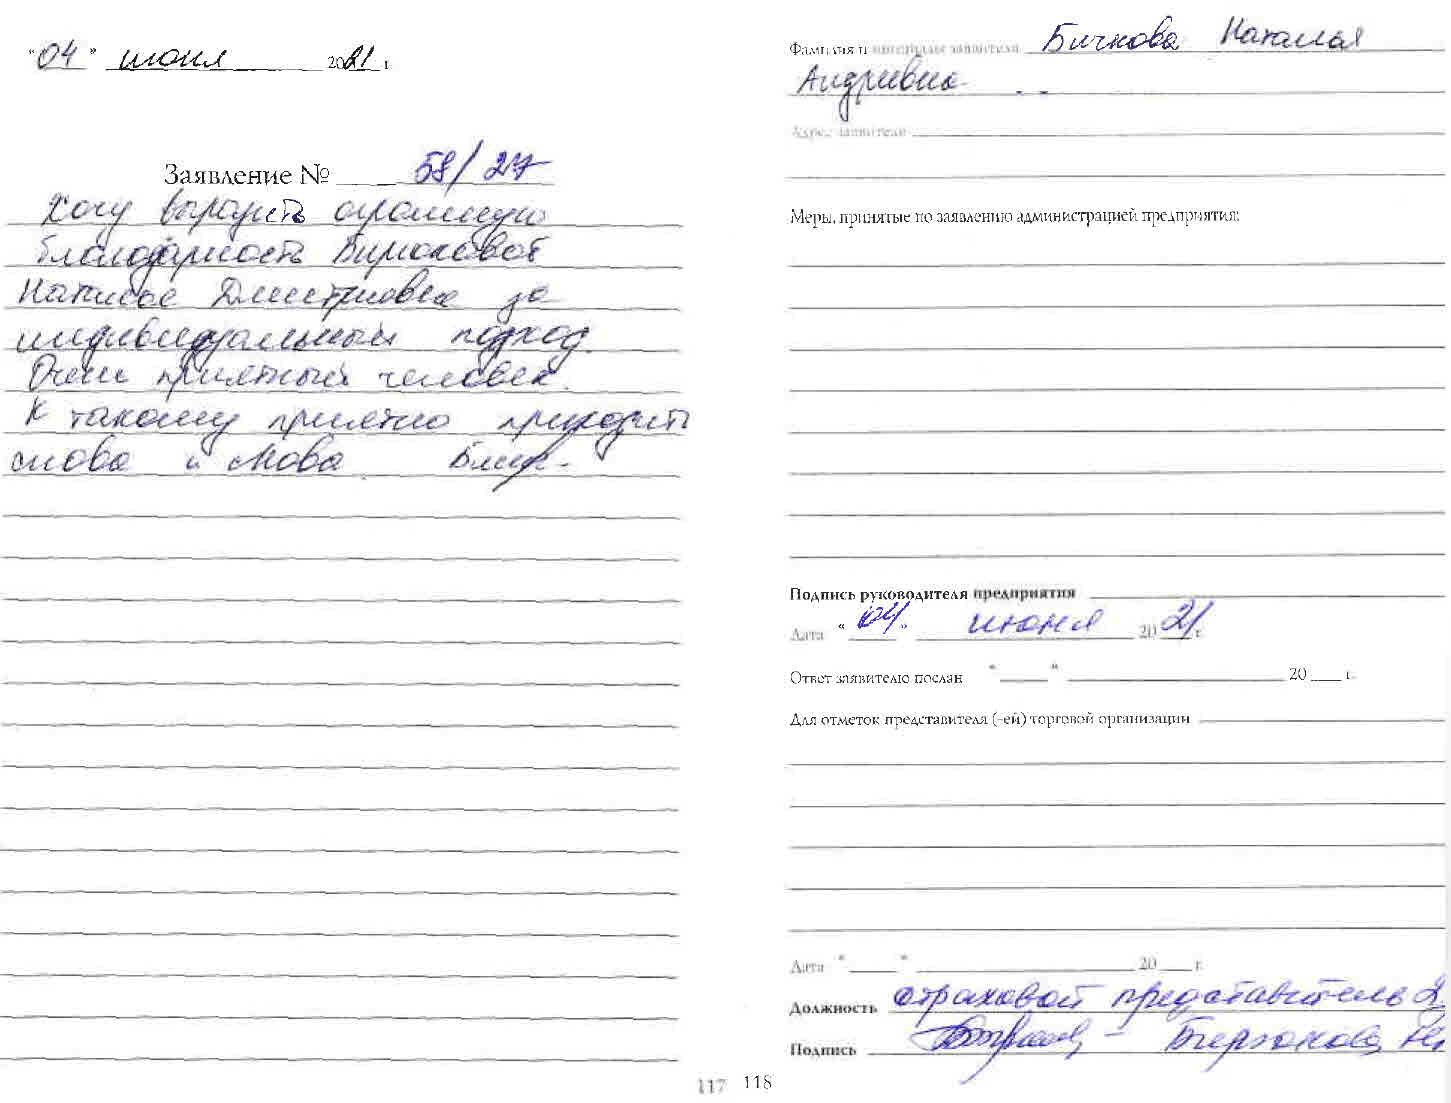 "04" июня 2021 г.
Заявление № 58/27
Хочу выразить огромную
благодарность Бирюковой
Наталье Дмитриевне за
индивидуальный подход.
Очень приятный человек.
К такому приятно приходить
снова и снова
Фамилия и инициалы заявителя Бичкова Наталья
Андреевна
Адрес заявителя
Меры, принятые по заявлению администрацией предприятия:
Подпись руководителя предприятия
Дата "04" июня 2021 г.
Ответ заявителю послан " " 20 г.
Для отметок представителя (-ей) торговой организации
Дата " " 20 г.
Должность страховой представитель 2
Подпись Бирюкова Н.
117 118